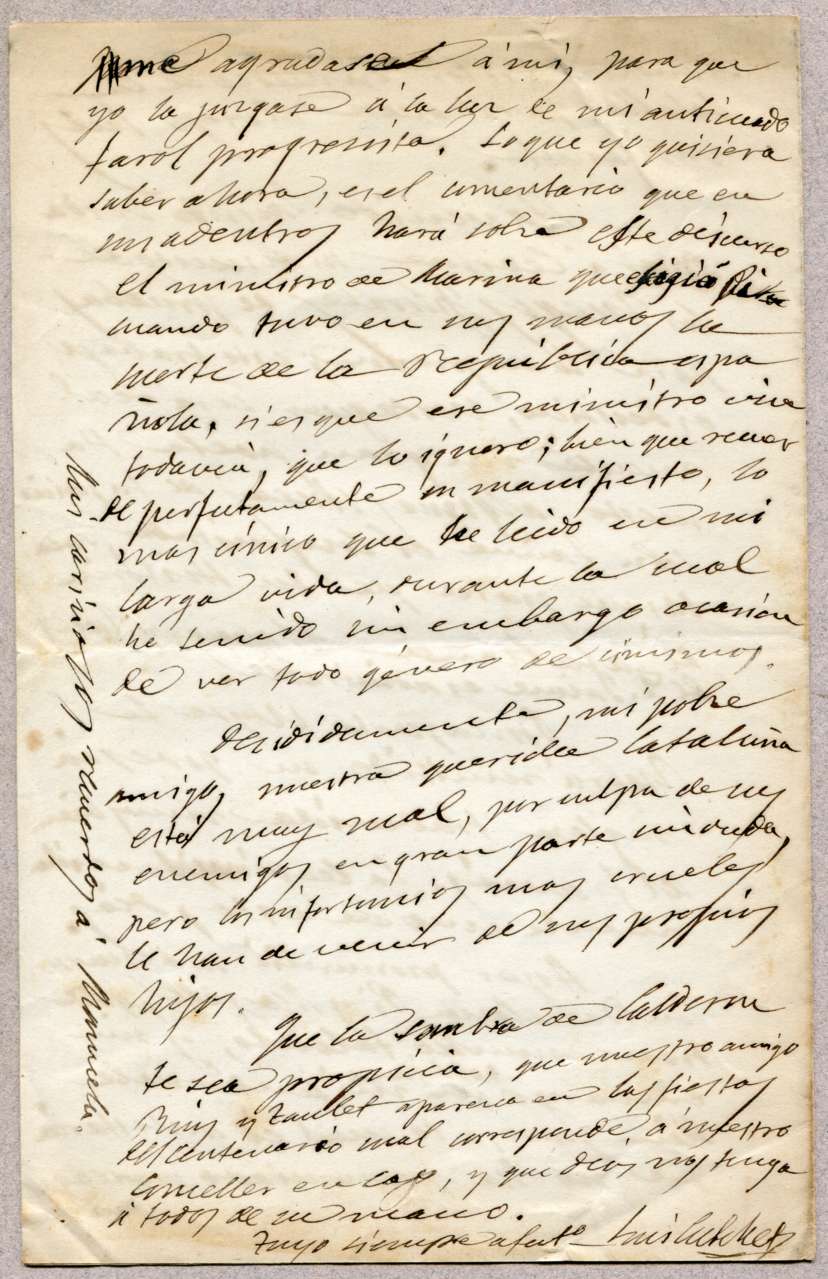 me agradase á mi, para que
yo la juzgase á la luz de mi anticuado
farol progresista. Lo que yo quisiera
saber ahora, es el comentario que en
sus adentros hará sobre este discurso
el ministro de Marina que
cuando tuvo en sus manos la
suerte de la República espa
ñola, si es que ese ministro vive
todavia, que lo ignoro; bien que recuer
do perfectamente su manifiesto, lo
mas cínico que he leido en mi
larga vida, durante la cual
he tenido sin embargo ocasión
de ver todo género de cinismos.
Decididamente, mi pobre
amigo, nuestra querida Cataluña
está muy mal, por culpa de sus
enemigos en gran parte sin duda,
pero los infortunios mas crueles
le han de venir de sus propios
hijos.
Que la sombra de Calderon
te sea propicia, que nuestro amigo
Rius y Taulet aparezca en las fiestas
del centenario cual corresponde á nuestro
conceller en cap, y que dios nos tenga
á todos de su mano.
Tuyo siempre afmo Luis Cutchet
Mis cariñosos recuerdos á Manuela.